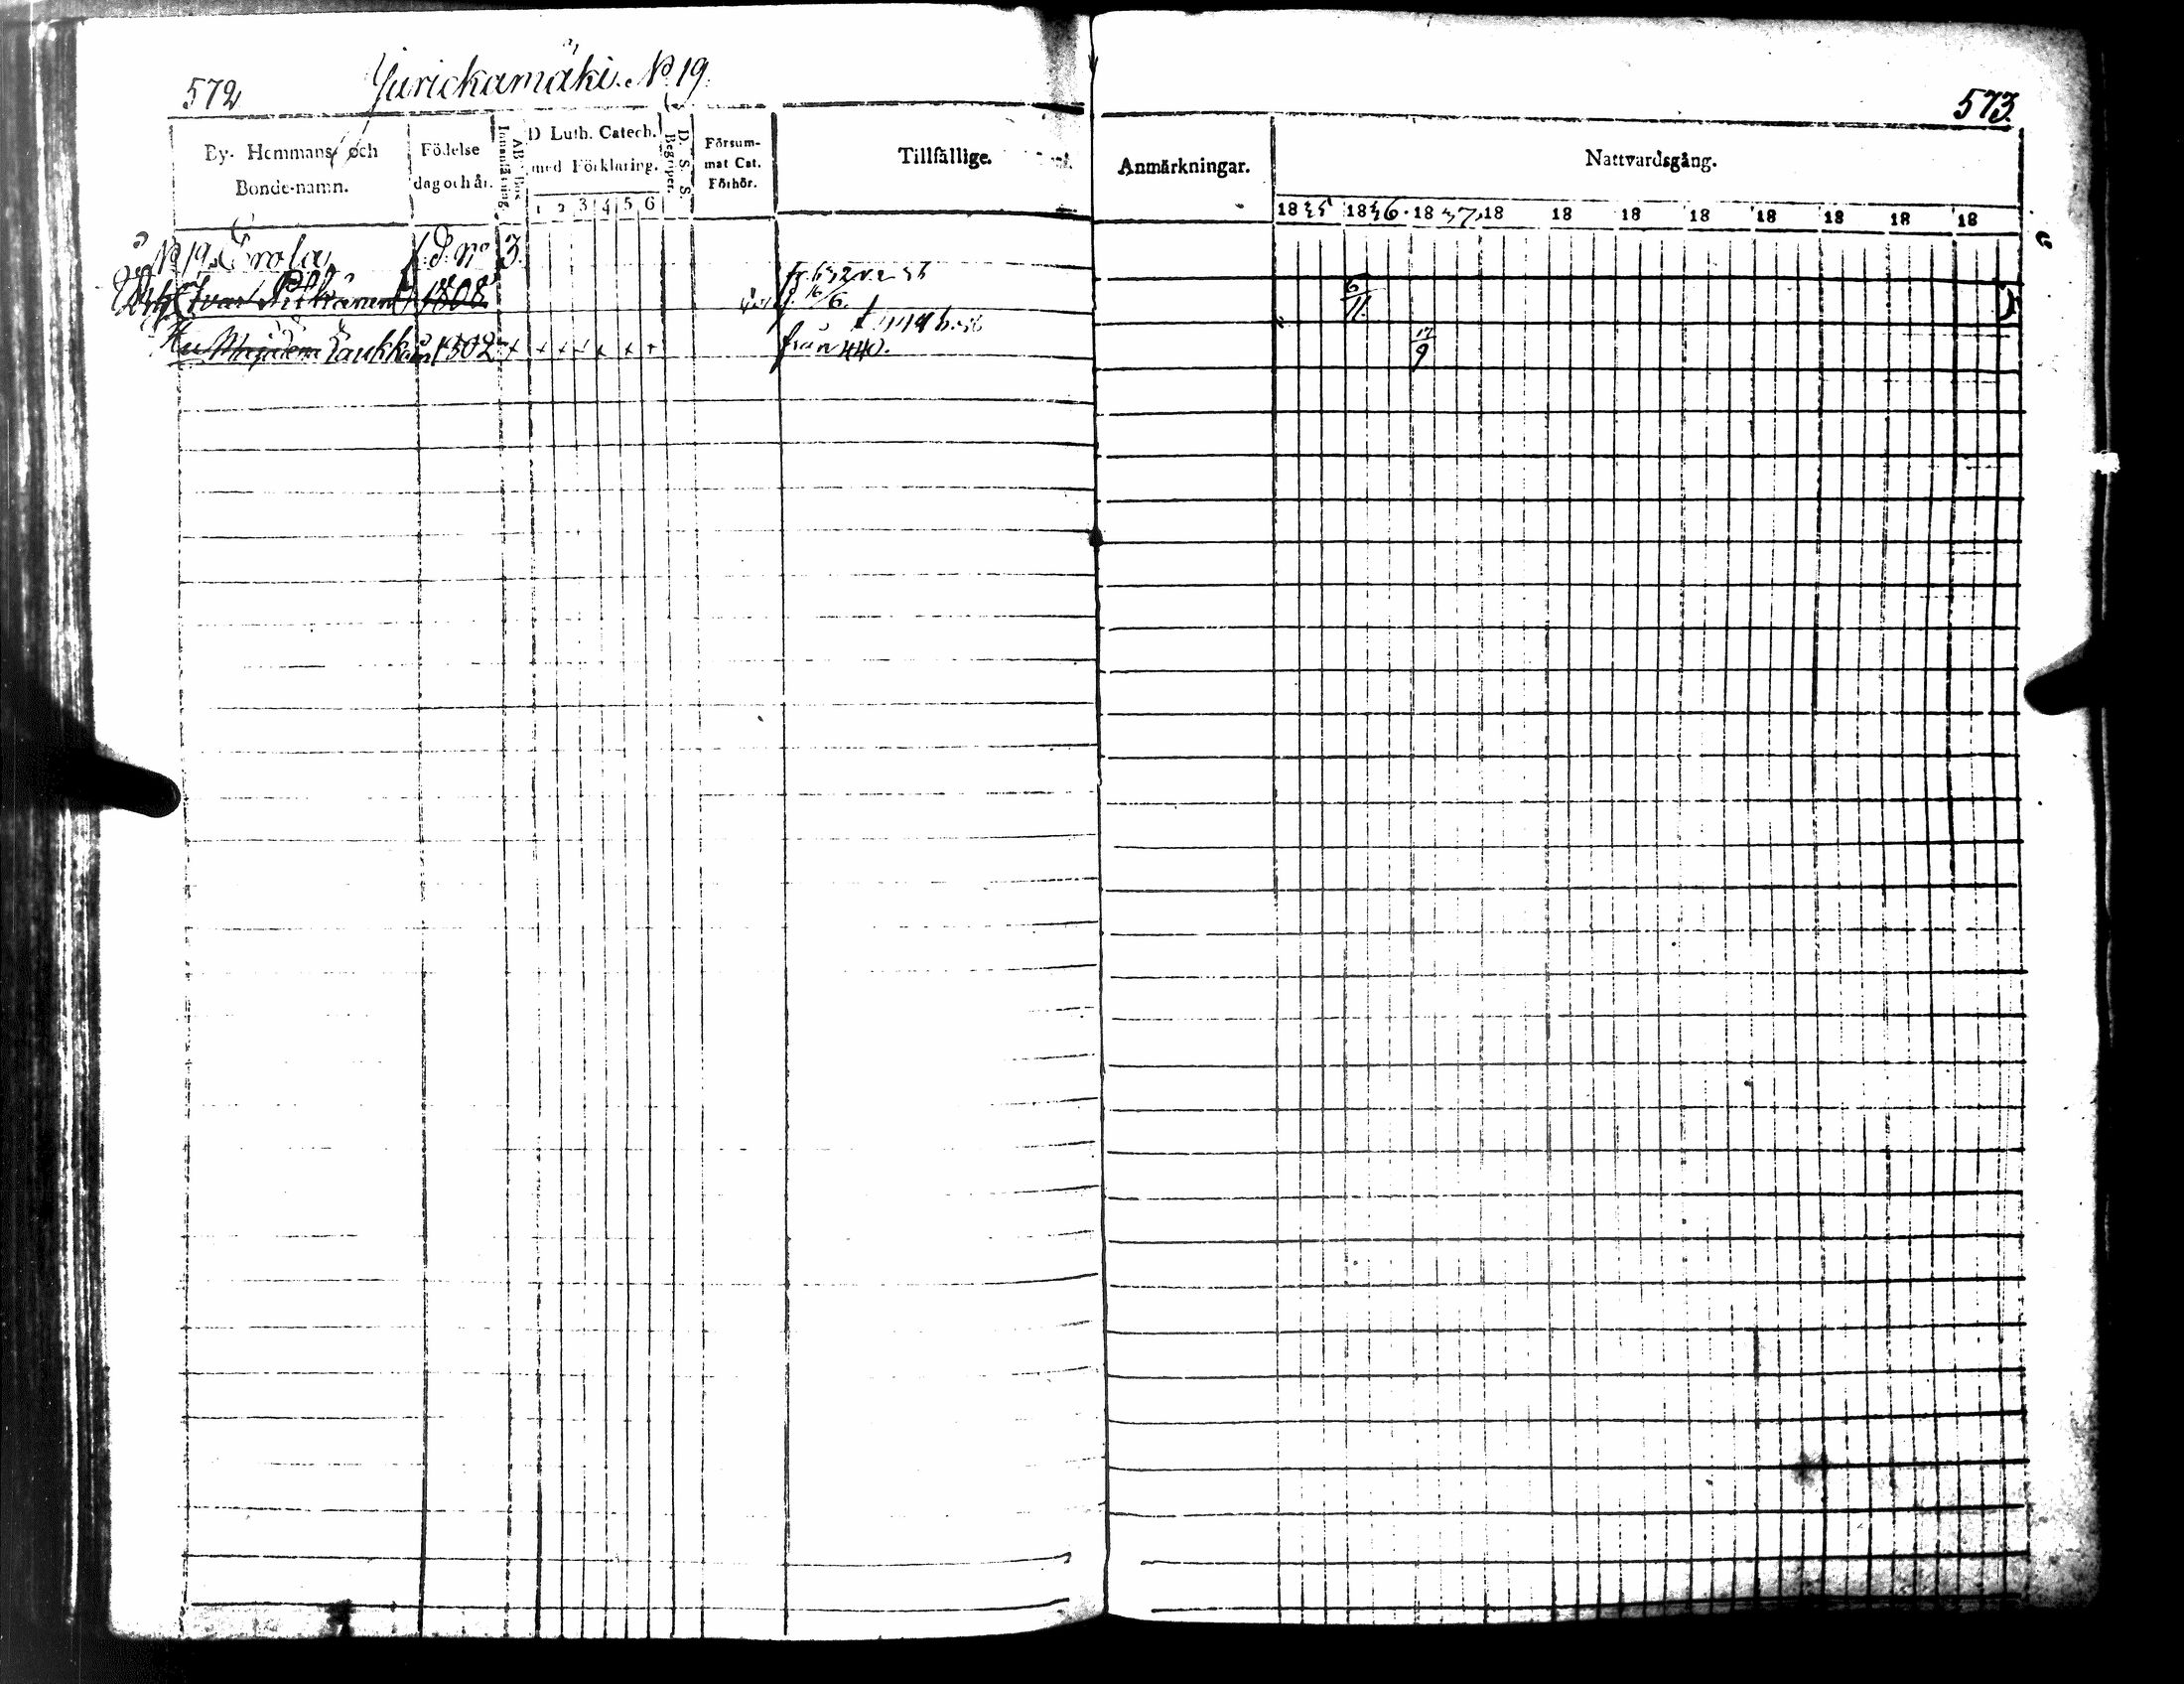 572
Jurickamäki. No 19.
573.
By- Hemmans- och Bonde-namn.
Födelse dag och år.
AB-Bok Innanläsning.
D Luth. Catech. med Förklaring.
1 2 3 4 5 6
D. S. S. Begriper.
Försum- mat Cat. Förhör.
Tillfällige.
Anmärkningar.
Nattvardsgång.
1835 1836. 1837. 18 18 18 18 18 18 18 18
No 19. Erola 3.
Ivar 1808 fr. 632 16/6. 6/11.
Hu Majalena Kaukkain 1802 x x x x x x x från 440. 17/9